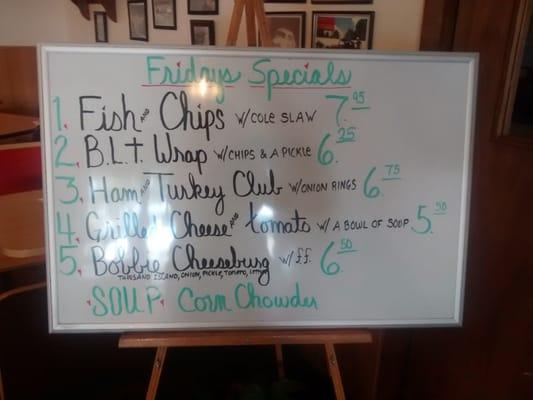 Fridays Specials
1. Fish AND Chips W/COLE SLAW 7.95
2. B.L.t. Wrap W/CHIPS & A PICKLE 6.25
3. Ham AND Turkey Club W/ONION RINGS 6.75
4. Grilled Cheese AND tomato W/ A BOWL OF SOUP 5.50
5. Bobbie Cheeseburg W/ f.f. 6.50
THOUSAND ISLAND, ONION, PICKLE, TOMATO,
SOUP Corn Chowder